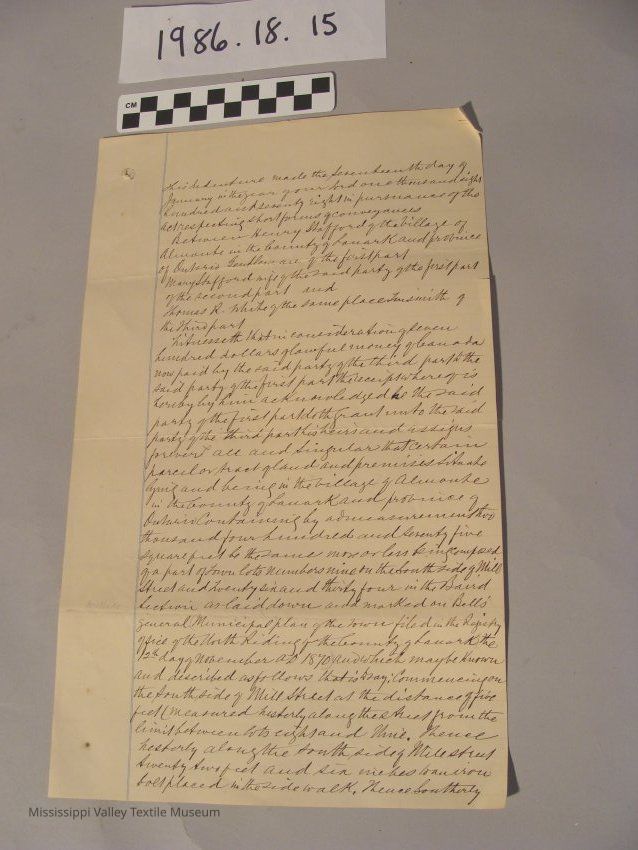 1986.18.15
CM
This Indenture made the Seventeenth day of
January in the year of our Lord one thousand eight
hundred and seventy eight in pursuance of the
act respecting short forms of conveyances
Between Henry Stafford of the Village of
Almonte in the County of Lanark and province
of Ontario Gentleman of the first part
Mary Stafford wife of the said party of the first part
of the second part and
Thomas R. White of the same place Tinsmith of
the third part
Witnesseth that in consideration of seven
hundred dollars of lawful money of Canada
now paid by the said party of the third part to the
said party of the first part the receipt whereof is
hereby by him acknowledged he the said
party of the first part doth grant unto the said
party of the third part his heirs and assigns
forever all and Singular that certain
parcel or tract of land and premises Situate
lying and being in the Village of Almonte
in the County of Lanark and province of
Ontario Containing by admeasurement two
thousand four hundred and seventy five
square feet be the same more or less being composed
of a part of town lots numbers nine on the South side of Mill
Street and twenty six and thirty four in the Baird
section as laid down and marked on Bell's
general Municipal plan of the town filed in the Registry
office of the North Riding of the County of Lanark the
12th day of November A.D 1870 and which may be known
and described as follows that is to say; Commencing on
the South side of Mill Street at the distance of five
feet (measured westerly along the street from the
limit between lots eight and Nine. Thence
westerly along the South side of Mill street
twenty two feet and six inches to an iron
bolt placed in the side walk. Thence Southerly
Mississippi Valley Textile Museum